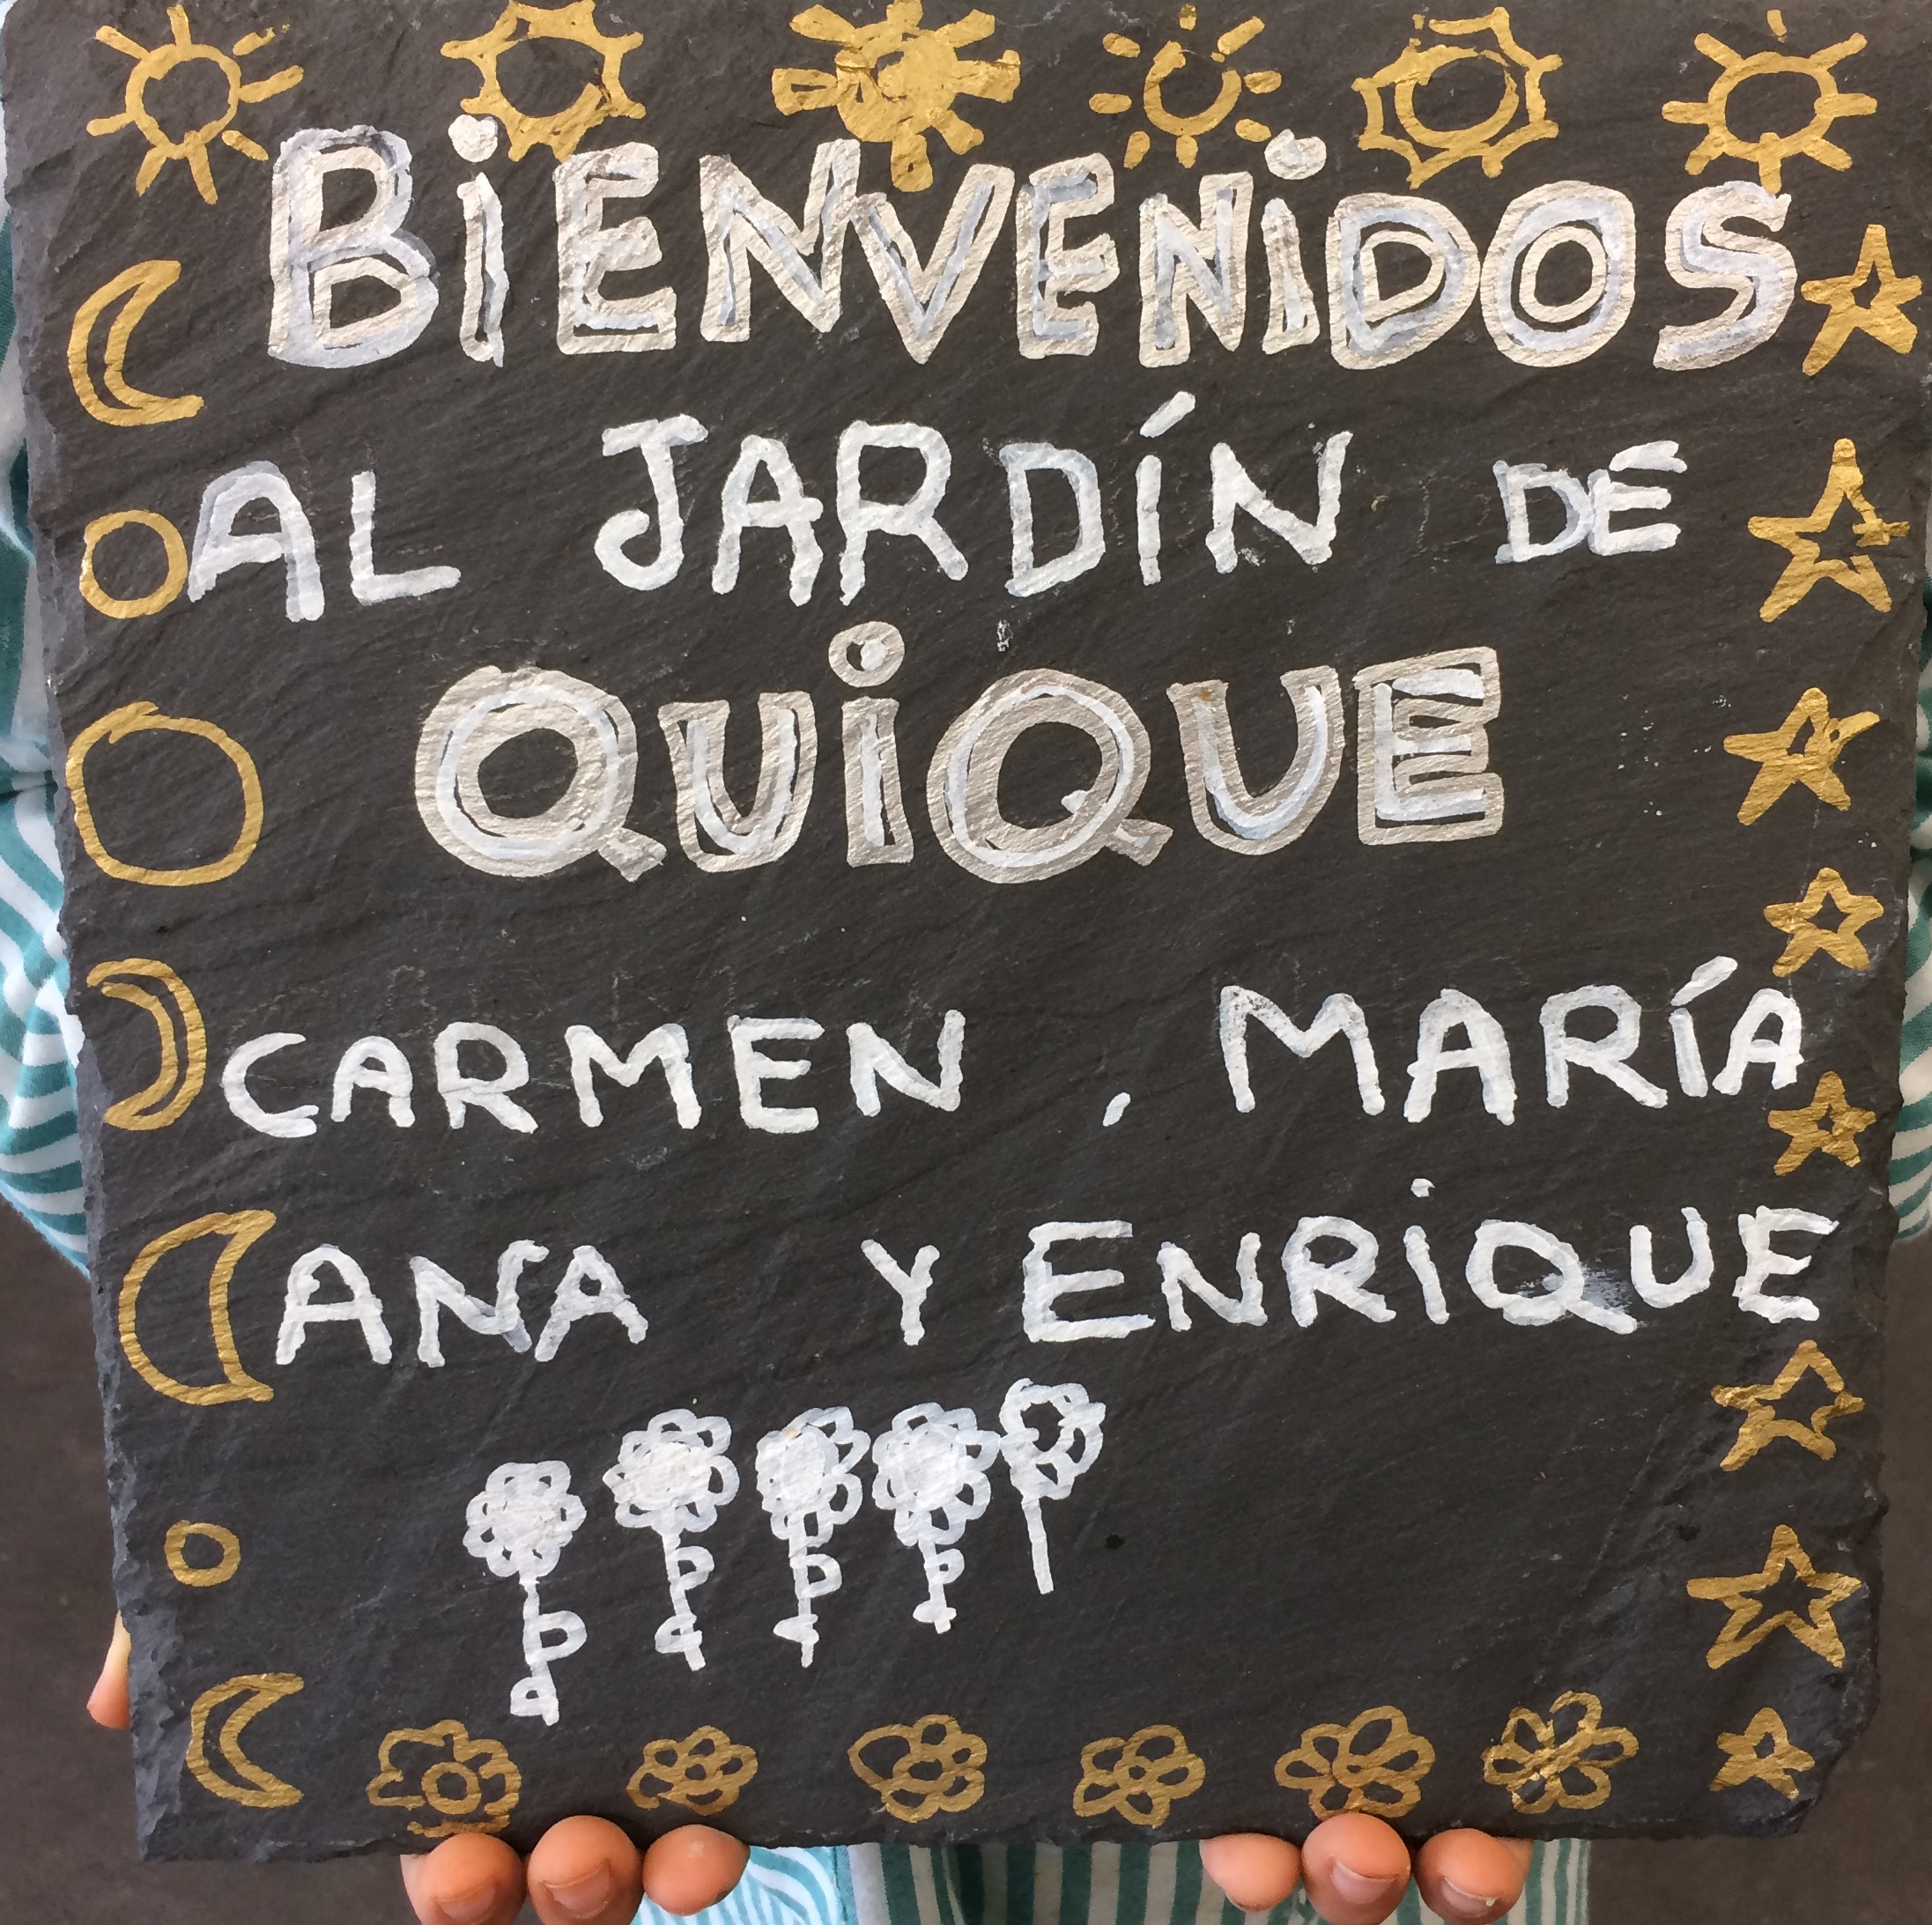 BiENVENiDOS
AL JARDÍN DE
QUiQUE
CARMEN , MARÍA
ANA Y ENRiQUE